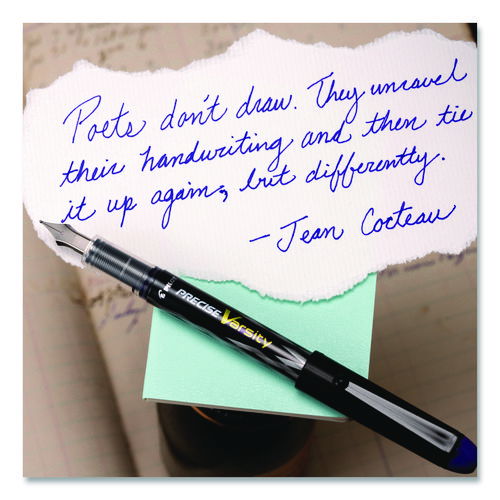 Poets don't draw. They unravel
their handwriting and then tie
it up again, but differently.
– Jean Cocteau
PILOT PRECISE Varsity